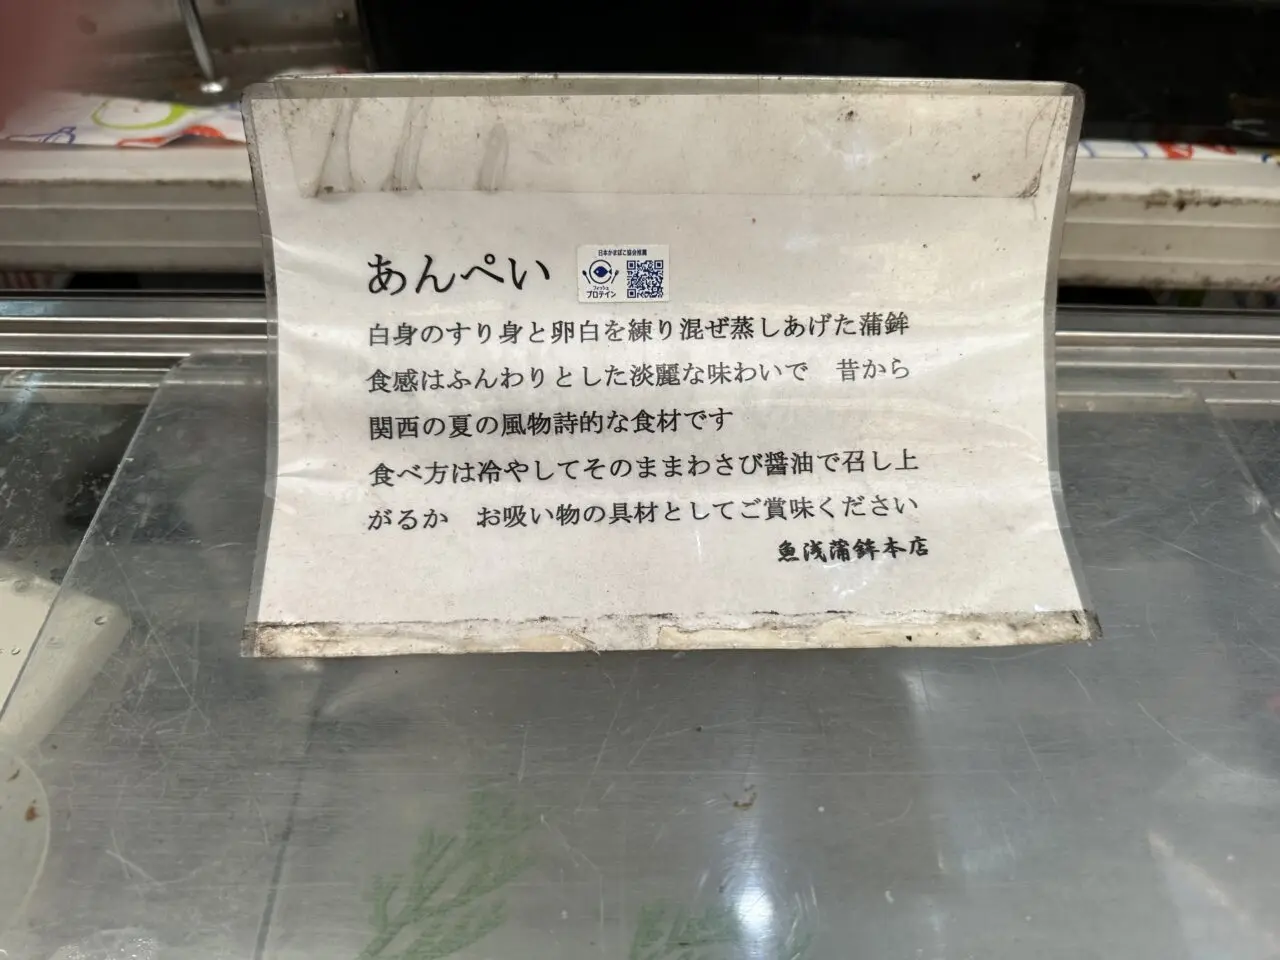 あんぺい
日本かまぼこ協会推薦
フィッシュ
プロテイン
白身のすり身と卵白を練り混ぜ蒸しあげた蒲鉾
食感はふんわりとした淡麗な味わいで　昔から
関西の夏の風物詩的な食材です
食べ方は冷やしてそのままわさび醤油で召し上
がるか　お吸い物の具材としてご賞味ください
魚浅蒲鉾本店